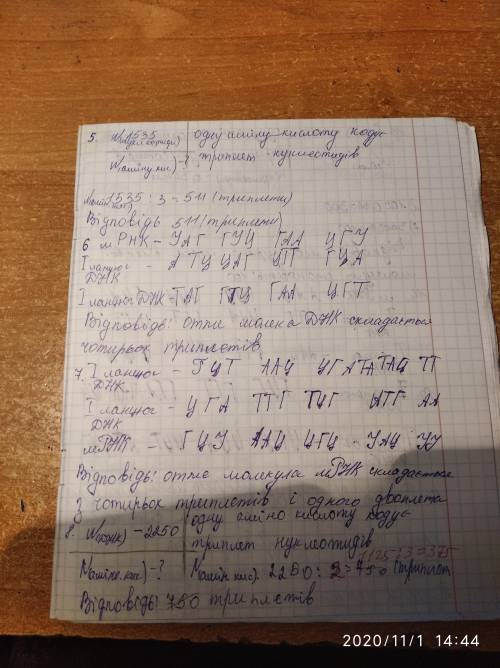 5. N(нуклеотиди) 1535 одну аміну кислоту кодує
N(аміну.кис) - ? триплет нуклеотидів
N(амін кис) 1535 : 3 = 511 (триплети)
Відповідь 511 (триплети)
6 мРНК - УАГ ГУЦ ГАА ЦГУ
I ланцюг ДНК - АТЦ ЦАГ ЦТТ ГЦА
I ланцюг ДНК - ТАГ ГТЦ ГАА ЦГТ
Відповідь: отже ДНК складається
чотирьох триплетів
7. I ланцюг ДНК - ГЦТ ААЦ ЦГА ТАЦ ТТ
I ланцюг ДНК - ЦГА ТТГ АТГ АА
мРНК - ГЦУ ААЦ УАЦ УУ
Відповідь: отже молекула мРНК складається
з чотирьох триплетів і одного дваплета
8. - 2250 одну аміно кислоту кодує
триплет нуклеотидів
1125 : 3 = 375
N(аміно.кис) - ? N(амін кис). 2250 : = 750 (триплет
Відповідь: 750 триплетів
2020/11/1 14:44